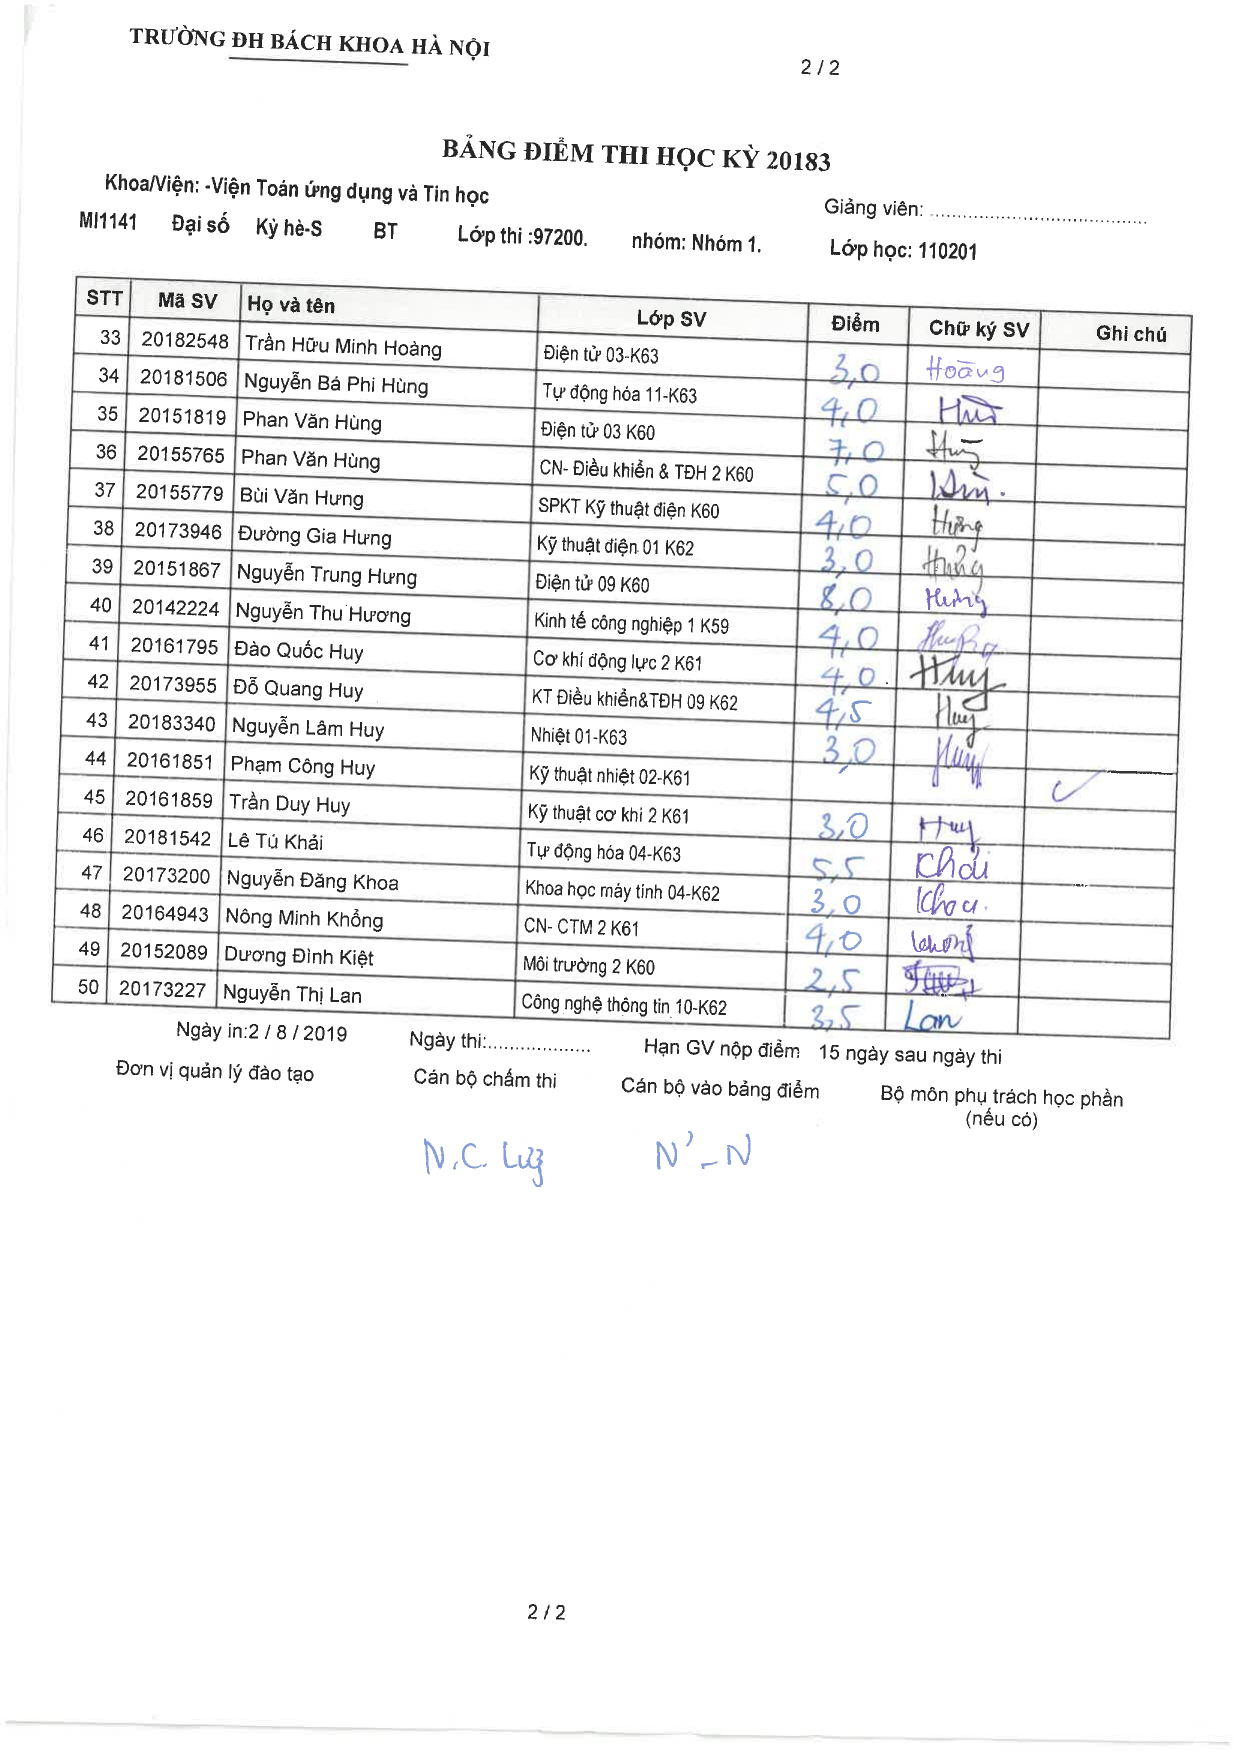 TRƯỜNG ĐH BÁCH KHOA HÀ NỘI
2 / 2
BẢNG ĐIỂM THI HỌC KỲ 20183
Khoa/Viện: -Viện Toán ứng dụng và Tin học
Giảng viên: ........................................
MI1141 Đại số Kỳ hè-S BT Lớp thi :97200. nhóm: Nhóm 1. Lớp học: 110201
STT Mã SV Họ và tên Lớp SV Điểm Chữ ký SV Ghi chú
33 20182548 Trần Hữu Minh Hoàng Điện tử 03-K63 3,0 Hoàng
34 20181506 Nguyễn Bá Phi Hùng Tự động hóa 11-K63 4,0
35 20151819 Phan Văn Hùng Điện tử 03 K60 7,0 Hùng
36 20155765 Phan Văn Hùng CN- Điều khiển & TĐH 2 K60 5,0
37 20155779 Bùi Văn Hưng SPKT Kỹ thuật điện K60 4,0 Hưng
38 20173946 Đường Gia Hưng Kỹ thuật điện 01 K62 3,0 Hưng
39 20151867 Nguyễn Trung Hưng Điện tử 09 K60 8,0 Hưng
40 20142224 Nguyễn Thu Hương Kinh tế công nghiệp 1 K59 4,0
41 20161795 Đào Quốc Huy Cơ khí động lực 2 K61 4,0 Huy
42 20173955 Đỗ Quang Huy KT Điều khiển&TĐH 09 K62 4,5 Huy
43 20183340 Nguyễn Lâm Huy Nhiệt 01-K63 3,0 Huy
44 20161851 Phạm Công Huy Kỹ thuật nhiệt 02-K61
45 20161859 Trần Duy Huy Kỹ thuật cơ khí 2 K61 3,0 Huy
46 20181542 Lê Tú Khải Tự động hóa 04-K63 5,5 Khải
47 20173200 Nguyễn Đăng Khoa Khoa học máy tính 04-K62 3,0 Khoa.
48 20164943 Nông Minh Khổng CN- CTM 2 K61 4,0 Khổng
49 20152089 Dương Đình Kiệt Môi trường 2 K60 2,5
50 20173227 Nguyễn Thị Lan Công nghệ thông tin 10-K62 3,5 Lan
Ngày in:2 / 8 / 2019 Ngày thi:................... Hạn GV nộp điểm 15 ngày sau ngày thi
Đơn vị quản lý đào tạo Cán bộ chấm thi Cán bộ vào bảng điểm Bộ môn phụ trách học phần
(nếu có)
N.C.
2 / 2